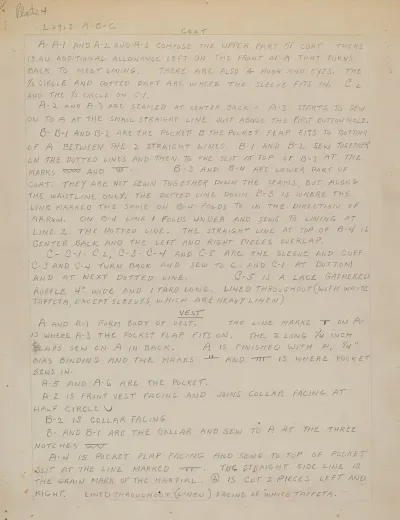 Plate 4
COAT
A- A-1 AND A-2 AND A-3 COMPOSE THE UPPER PART OF COAT THERE
IS AN ADDITIONAL ALLOWANCE LEFT ON THE FRONT OF A THAT TURNS
BACK TO MEET LINING. THERE ARE ALSO 4 HOOK AND EYES. THE
½ CIRCLE AND DOTTED PART ARE WHERE THE SLEEVE FITS IN. C-2
AND THE ½ CIRCLE ON C-1.
A-2 AND A-3 ARE SEAMED AT CENTER BACK - A-3 STARTS TO SEW
ON TO A AT THE SMALL STRAIGHT LINE JUST ABOVE THE FIRST BUTTONHOLE.
B- B-1 AND B-2 ARE THE POCKET B THE POCKET FLAP FITS TO BOTTOM
OF A BETWEEN THE 2 STRAIGHT LINES. B-1 AND B-2 SEW TOGETHER
ON THE DOTTED LINES AND THEN TO THE SLIT AT TOP OF B-3 AT THE
MARKS AND . B-3 AND B-4 ARE LOWER PART OF
COAT. THEY ARE NOT SEWN TOGETHER DOWN THE SEAMS, BUT ALONG
THE WAISTLINE ONLY. THE DOTTED LINE DOWN B-3 IS WHERE THE
LINE MARKED THE SAME ON B-4 FOLDS TO IN THE DIRECTION OF
ARROW. ON B-4 LINE 1 FOLDS UNDER AND SEWS TO LINING AT
LINE 2. THE DOTTED LINE. THE STRAIGHT LINE AT TOP OF B-4 IS
CENTER BACK AND THE LEFT AND RIGHT PIECES OVERLAP.
C- C-1- C2, C-3- C-4 AND C-5 ARE THE SLEEVE AND CUFF
C-3 AND C-4 TURN BACK AND SEW TO C AND C-1 AT BOTTOM
AND AT NEXT DOTTED LINE. C-5 IS A LACE GATHERED
RUFFLE 4" WIDE AND 1 YARD LONG. LINED THROUGHOUT (WITH WHITE
TAFFETA, EXCEPT SLEEVES, WHICH ARE HEAVY LINEN)
VEST
A AND A-1 FORM BODY OF VEST. THE LINE MARKS ON A
IS WHERE A-3 THE POCKET FLAP FITS ON. THE 2 LONG ¼ INCH
FLAPS SEW ON A IN BACK. A IS FINISHED WITH A ¼"
BIAS BINDING AND THE MARKS AND IS WHERE POCKET
SEWS IN.
A-5 AND A-6 ARE THE POCKET.
A-2 IS FRONT VEST FACING AND JOINS COLLAR FACING AT
HALF CIRCLE
B-2 IS COLLAR FACING
B- AND B-1 ARE THE COLLAR AND SEW TO A AT THE THREE
NOTCHES
A-4 IS POCKET FLAP FACING AND SEWS TO TOP OF POCKET
SLIT AT THE LINE MARKED . THE STRAIGHT SIDE LINE IS
THE GRAIN MARK OF THE MATERIAL. IS CUT 2 PIECES LEFT AND
RIGHT. LINED THROUGHOUT (LINEN) FACING OF WHITE TAFFETA.